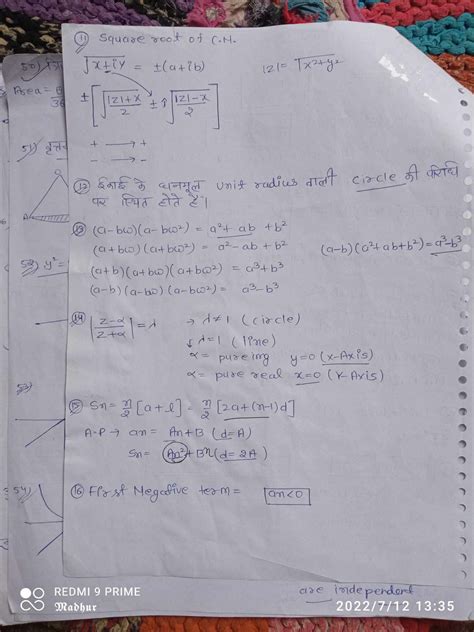 11 Square root of C.N.
√x+iy = ±(a+ib) |z| = √x²+y²
±[√|z|+x/2 ± i√|z|-x/2]
+ → +
- → -
12 इकाई के घनमूल unit radius वाली circle की परिधि
पर स्थित होते हैं।
13 (a-bω)(a-bω²) = a²+ab+b²
(a+bω)(a+bω²) = a²-ab+b² (a-b)(a²+ab+b²)=a³-b³
(a+b)(a+bω)(a+bω²) = a³+b³
(a-b)(a-bω)(a-bω²) = a³-b³
14 |z-α/z+α| = λ → λ≠1 (circle)
↓ λ=1 (line)
α = pure img y=0 (x-Axis)
α = pure real x=0 (Y-Axis)
15 Sn = n/2[a+l] = n/2[2a+(n-1)d]
A.P → an = An+B (d=A)
Sn = An²+Bn (d=2A)
16 First Negative term = an<0
50)
Area =
51)
A
52) y² =
53)
54)
are independent
REDMI 9 PRIME
Madhur
2022/7/12 13:35